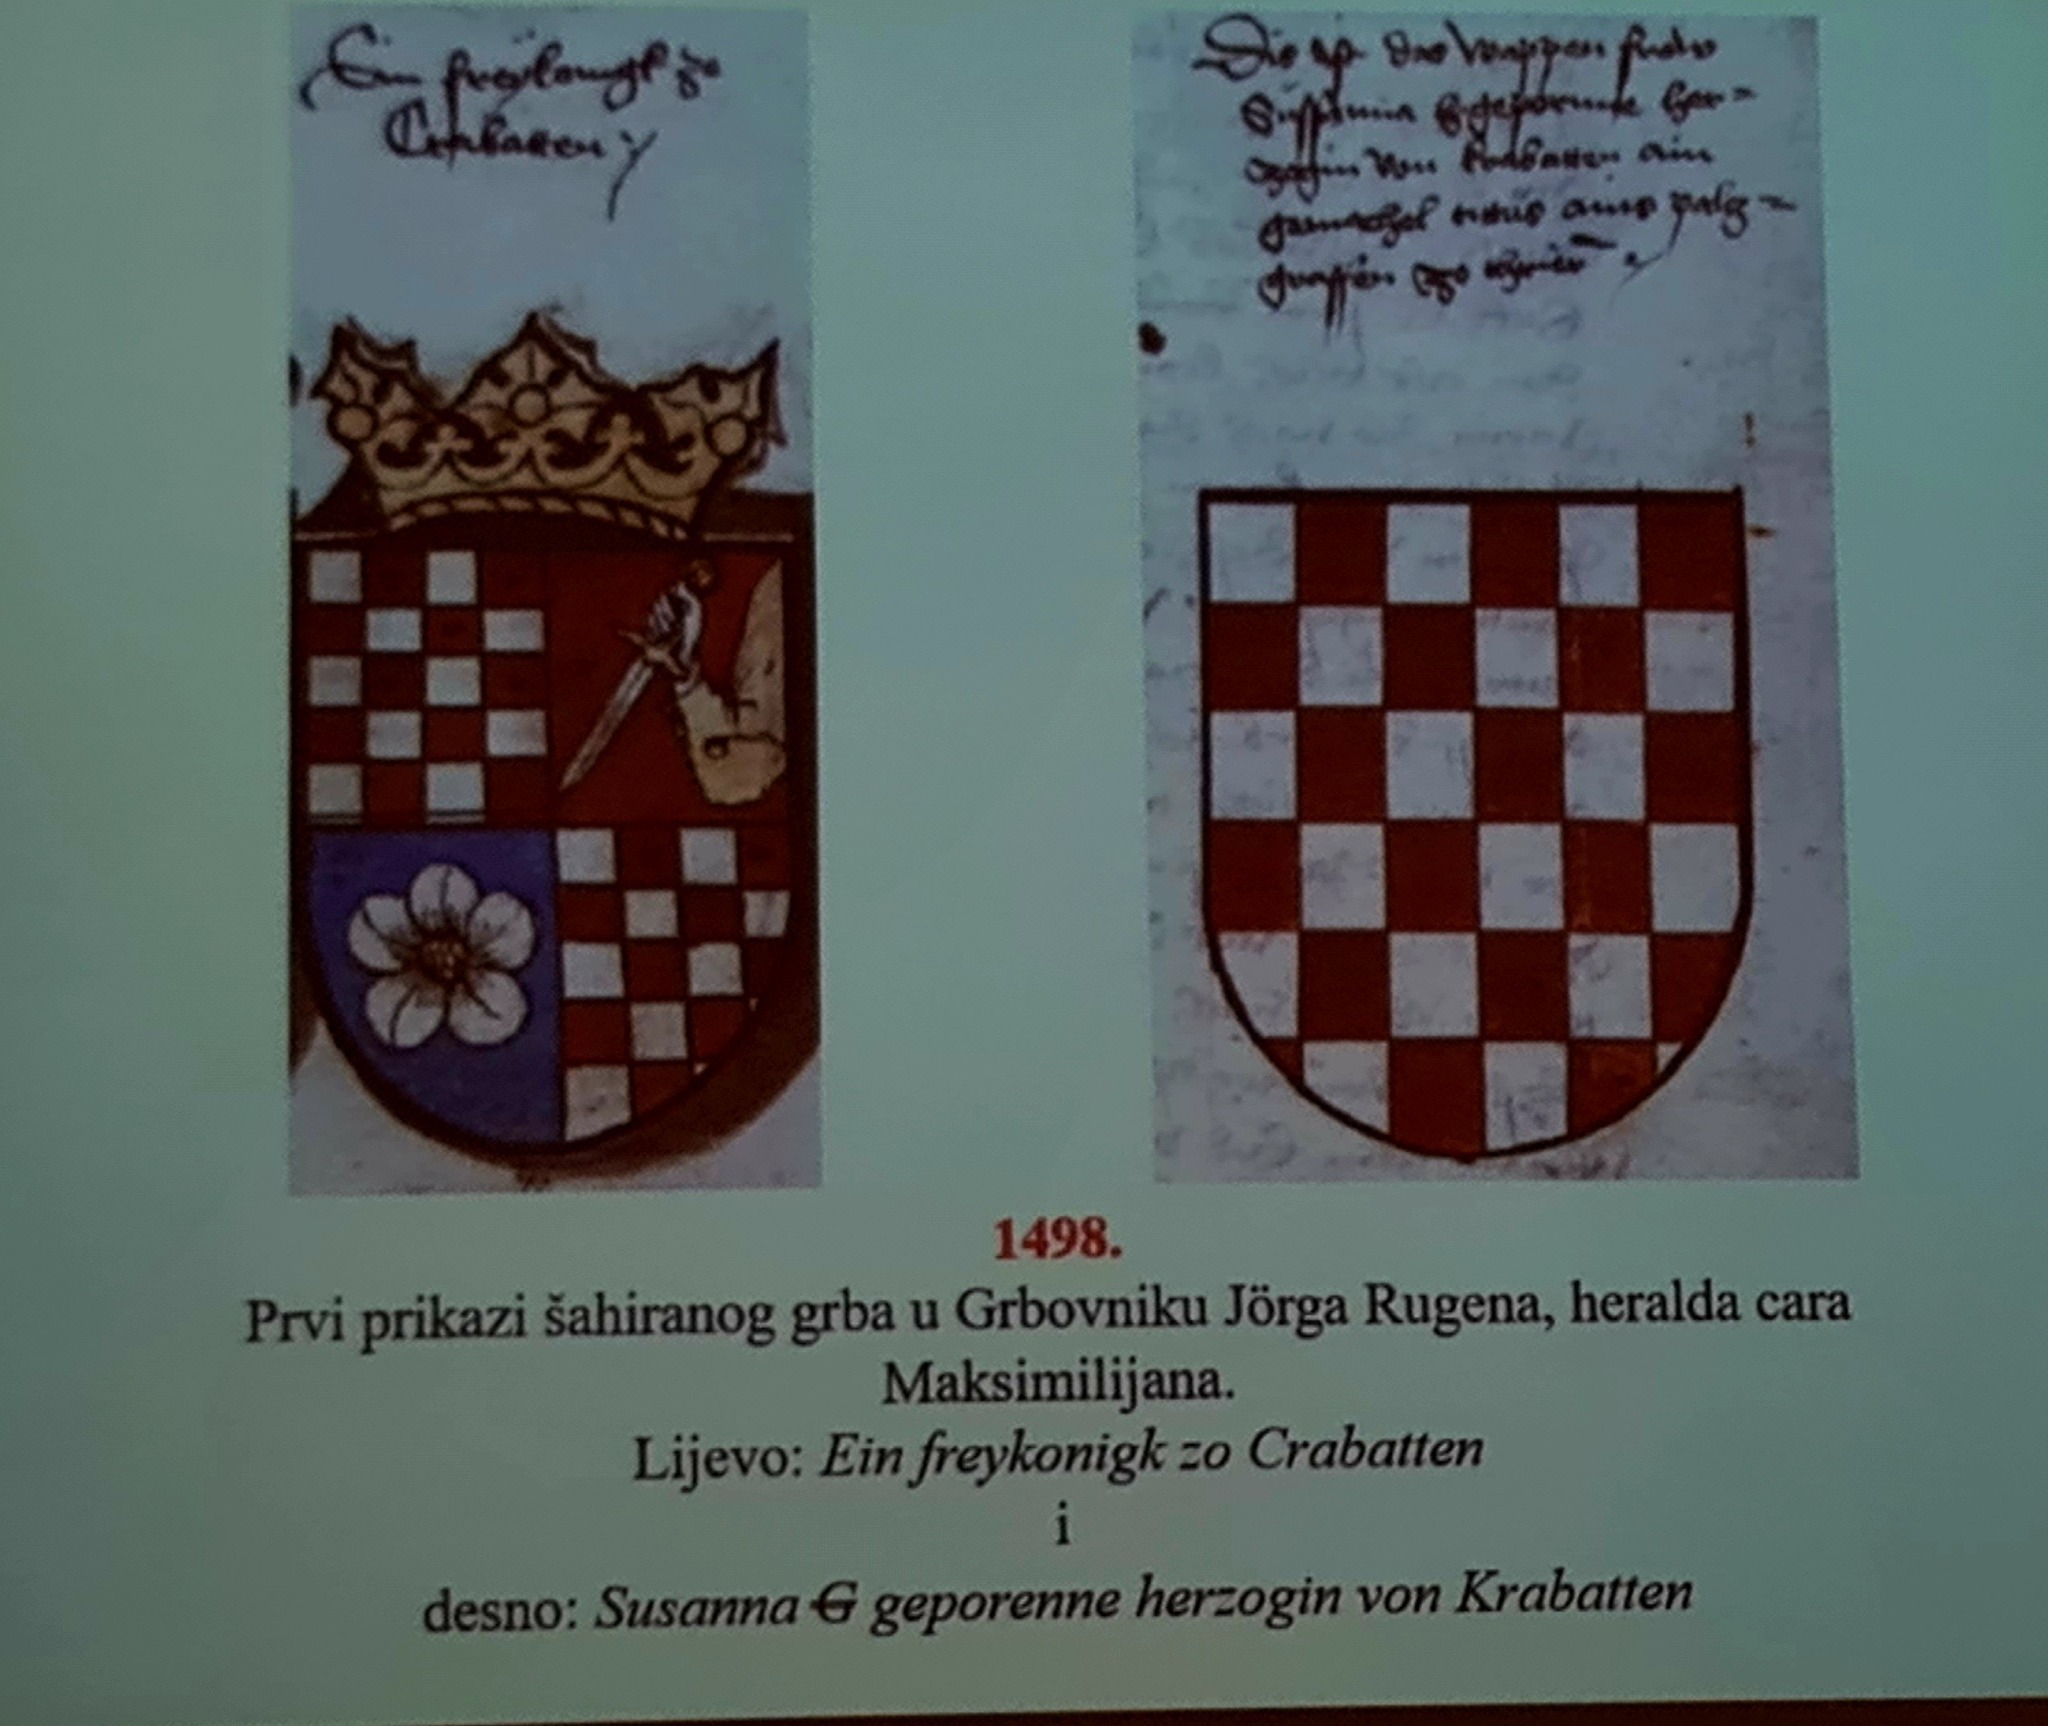 Ein freykonigk zo
Crabatten
Die ist das Wappen frau
Susanna G geporenne her-
zogin von Krabatten ain
gemachel aines palcz-
1498.
Prvi prikazi šahiranog grba u Grbovniku Jörga Rugena, heralda cara
Maksimilijana.
Lijevo: Ein freykonigk zo Crabatten
i
desno: Susanna G geporenne herzogin von Krabatten